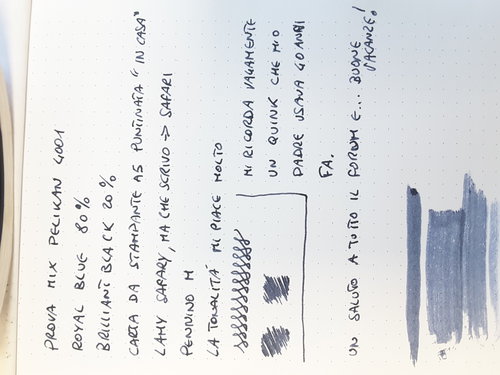 PROVA MIX PELIKAN 4001
ROYAL BLUE 80%
BRILLIANT BLACK 20%
CARTA DA STAMPANTE A5 PUNTINATA "IN CASA"
LAMY SAFARY, MA CHE SCRIVO => SAFARI
PENNINO M
LA TONALITÀ MI PIACE MOLTO
MI RICORDA VAGAMENTE
UN QUINK CHE MIO
PADRE USAVA 40 ANNI
FA.
UN SALUTO A TUTTO IL FORUM E... BUONE
VACANZE!